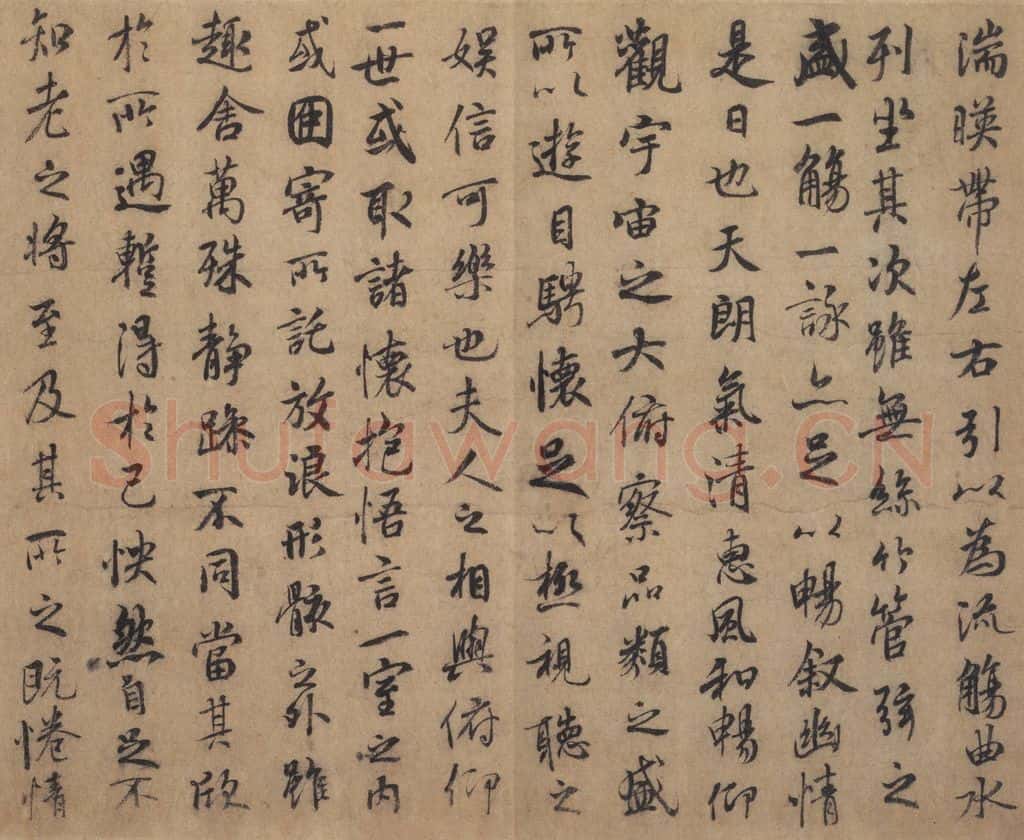 湍暎帶左右引以為流觴曲水
列坐其次雖無絲竹管弦之
盛一觴一詠亦足以暢叙幽情
是日也天朗氣清惠風和暢仰
觀宇宙之大俯察品類之盛
所以遊目騁懷足以極視聽之
娛信可樂也夫人之相與俯仰
一世或取諸懷抱悟言一室之內
或因寄所託放浪形骸之外雖
趣舍萬殊靜躁不同當其欣
於所遇蹔得於己怏然自足不
知老之將至及其所之既惓情
Shufawang.CN